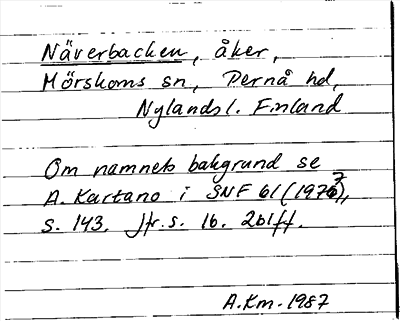 Näverbacken, åker,
Mörskoms sn, Pernå hd,
Nylands l. Finland
Om namnets bakgrund se
A. Kartano i SNF 61 (1977),
s. 143. Jfr. s. 16. 261ff.
A.Km. 1987